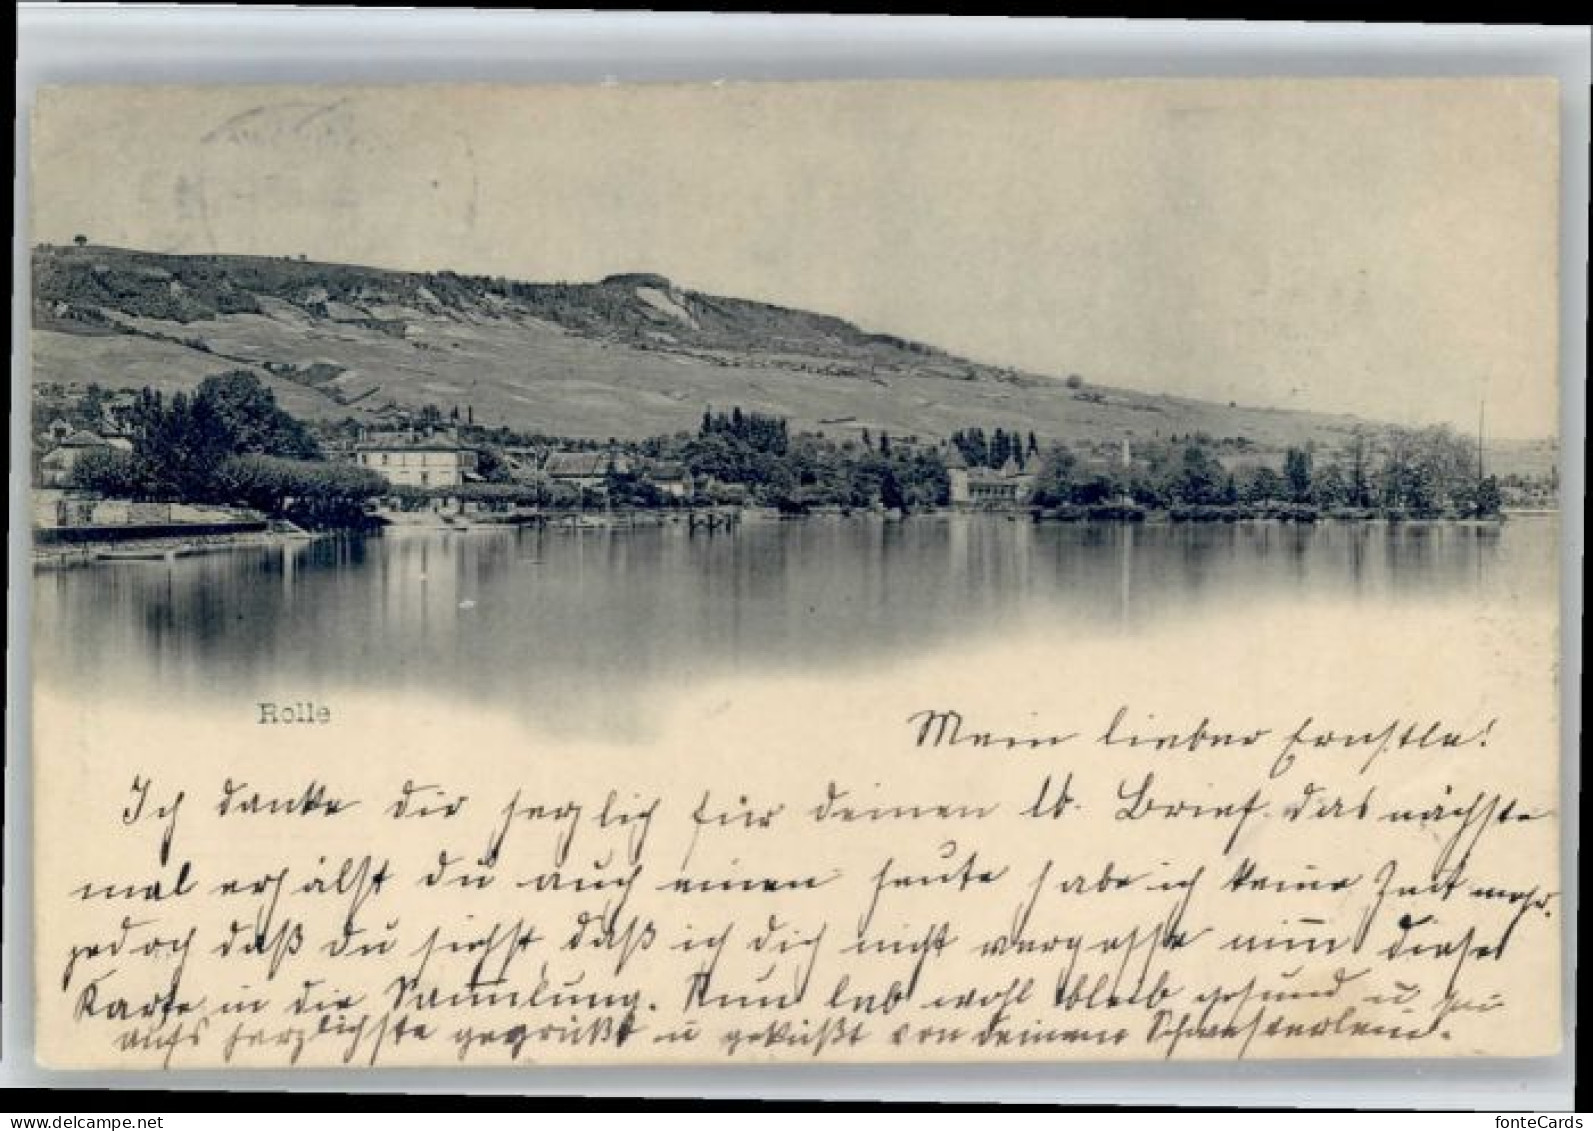 Rolle
Mein lieber Ernstle!
Ich danke dir herzlich für deinen lb. Brief. das nächste
mal erhälst du auch einen heute habe ich keine Zeit mehr.
jedoch daß du siehst, daß ich dich nicht vergesse nim̅ diese
Karte in die Sam̅lung. Nun leb wohl bleib gesund u sei
aufs herzlichste gegrüßt u geküßt von deinem Schwesterlein.
www.delcampe.net
fonteCards